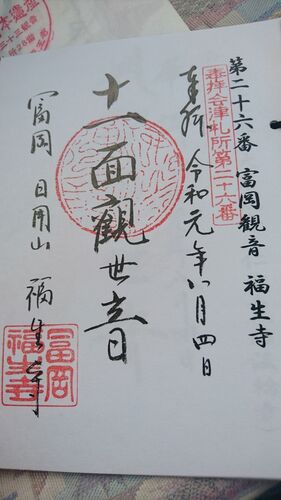 第二十六番 富岡観音 福生寺
奉拝会津札所第二十六番
奉拝 令和元年八月四日
十一面觀世音
冨岡 日用山 福生寺
冨岡福生寺